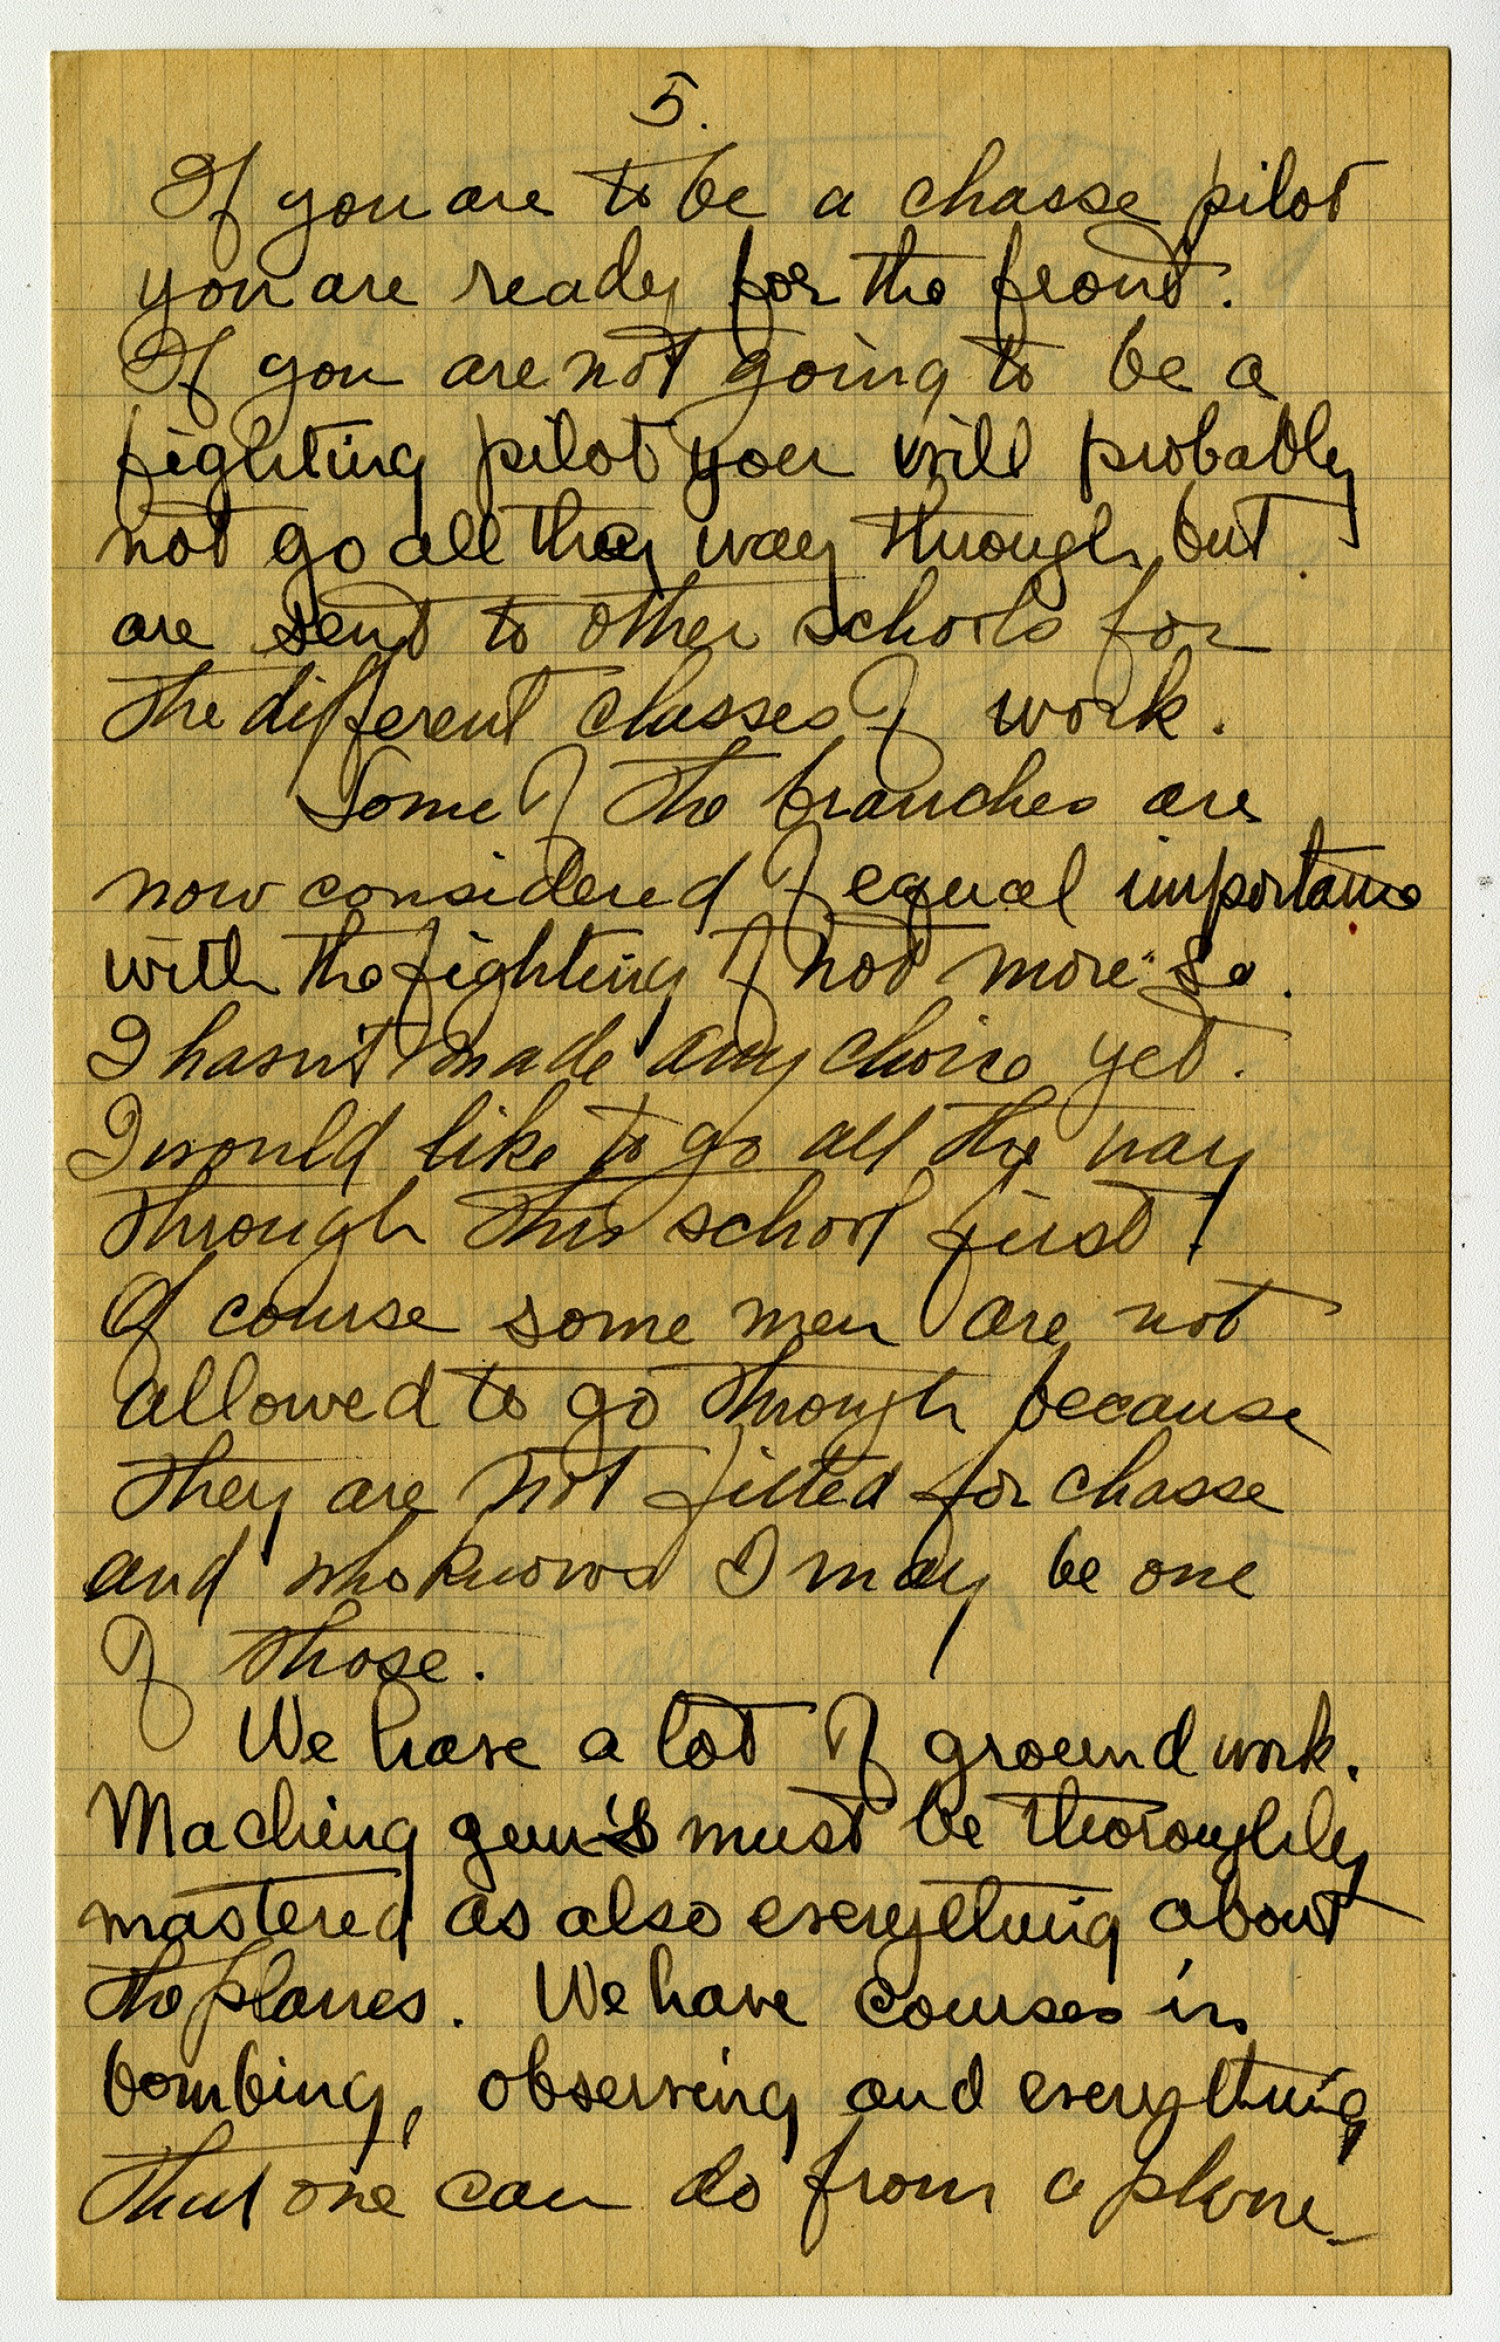 5.
If you are to be a chasse pilot
you are ready for the front.
If you are not going to be a
fighting pilot you will probably
not go all the way through, but
are sent to other schools for
the different classes of work.
Some of the branches are
now considered of equal importance
with the fighting if not more so.
I hasn't made any choice yet.
I would like to go all the way
through this school first.
Of course some men are not
allowed to go through because
they are not fitted for chasse
and who knows I may be one
of those.
We have a lot of ground work.
Maching gun's must be thoroughly
mastered as also everything about
the planes. We have courses in
bombing, observing and everything
that one can do from a plane.